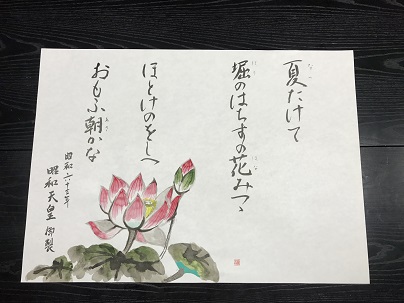 夏たけて
堀のはちすの花みつゝ
ほとけのをしへ
おもふ朝かな
昭和六十三年
昭和天皇 御製